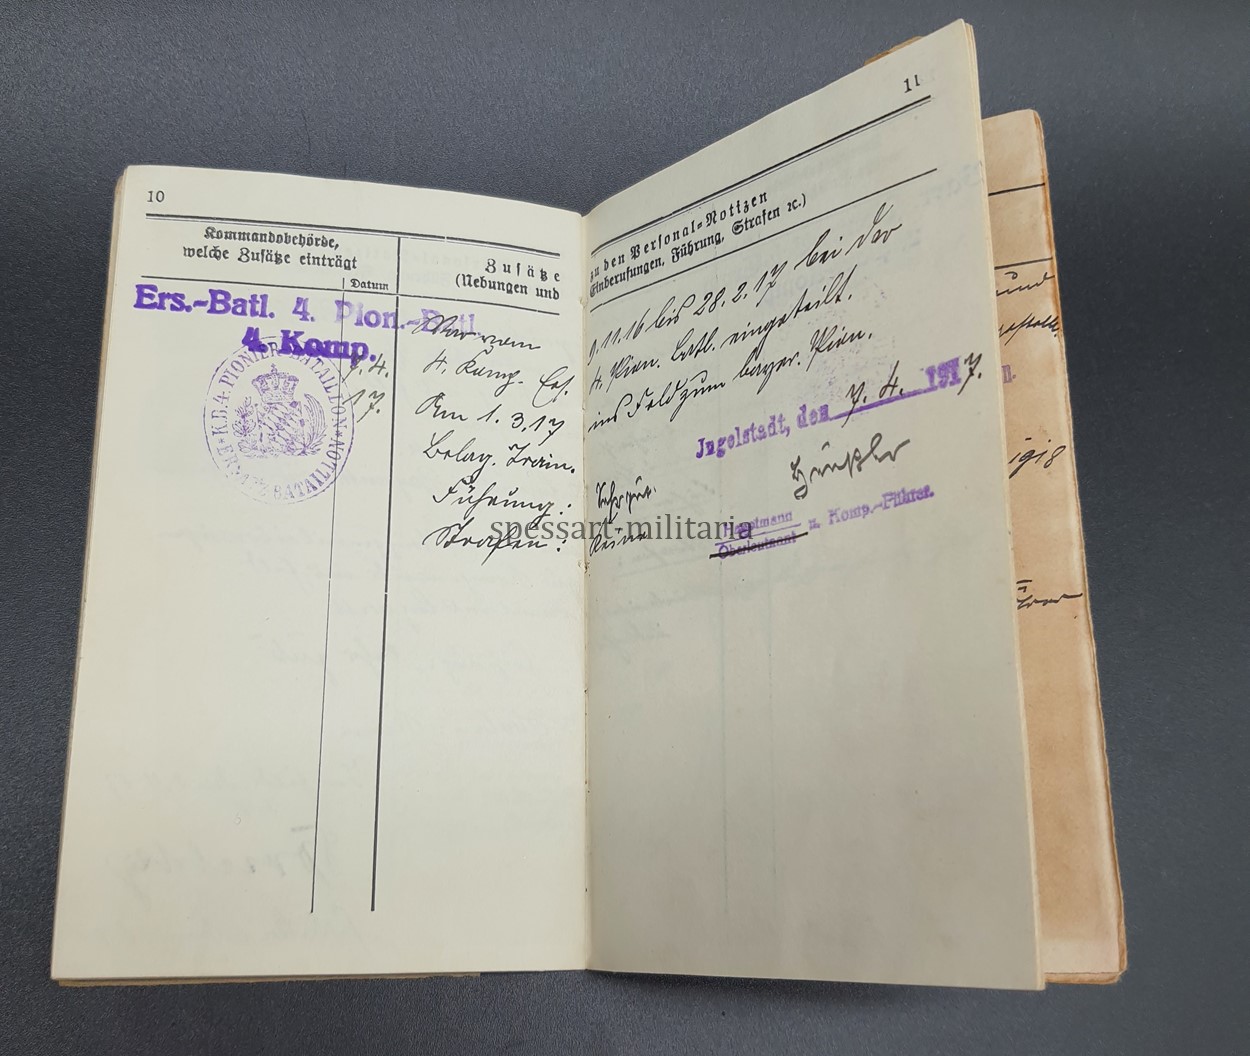 10
Kommandobehörde,
welche Zusätze einträgt
Datum
Zusätze
(Uebungen und
Ers.-Batl. 4. Pion.-Batl.
4. Komp.
7. 4.
17.
K.B. 4. PIONIER-BATAILLON
ERSATZ BATAILLON
War vom
4. Komp. Ers.
Am 1. 3. 17
Belag. Train.
Führung:
Strafen:
11
zu den Personal-Notizen
Einberufungen, Führung, Strafen ꝛc.)
9. 11. 16 bis 28. 2. 17 bei der
4. Pion. Batl. eingeteilt.
ins Feld zum bayer. Pion.
Ingolstadt, den 7. 4. 1917.
Sehr gut.
Keine
Hauptmann
Oberleutnant
u. Komp.-Führer.
und
1918
spessart-militaria